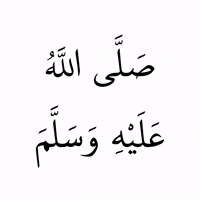 صَلَّى اللَّهُ
عَلَيْهِ وَسَلَّمَ